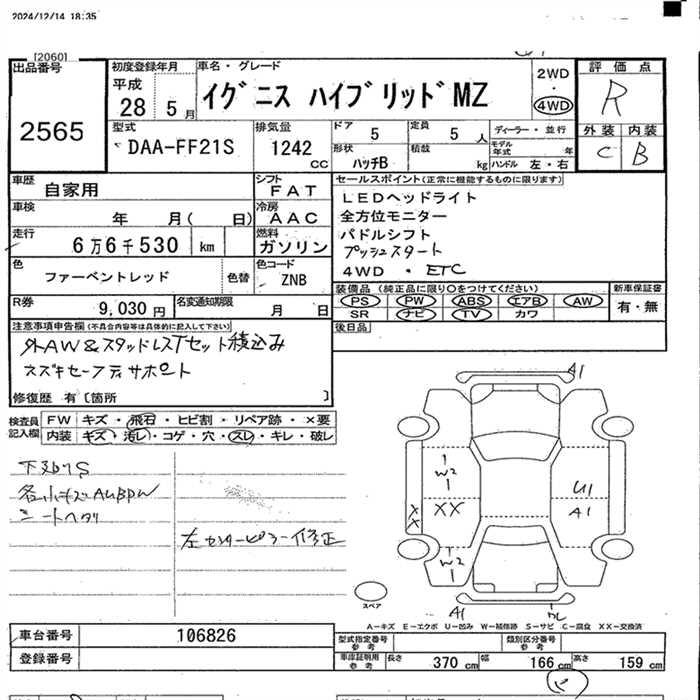 2024/12/14 18:35
[2060]
出品番号
2565
初度登録年月
平成
28 5月
車名・グレード
イグニス ハイブリッド MZ
2WD
・
4WD
評価点
R
外装 内装
C B
型式
DAA-FF21S
排気量
1242
CC
ドア
5
定員
5 人
形状
ハッチB
積載
kg
ディーラー・並行
モデル年式 年
ハンドル 左・右
車歴
自家用
シフト
FAT
車検
年 月( 日)
冷房
AAC
走行
6万6千530 km
燃料
ガソリン
色
ファーベントレッド
色替
色コード
ZNB
R券
9,030 円
名変通知期限
月 日
セールスポイント(正常に機能するものに限ります)
LEDヘッドライト
全方位モニター
パドルシフト
プッシュスタート
4WD ・ ETC
装備品 (純正品に限り○をつけてください)
PS PW ABS エアB AW
SR ナビ TV カワ
新車保証書
有・無
後日品
注意事項申告欄(不具合内容等は具体的に記入して下さい)
外AW&スタッドレスTセット積込み
スズキセーフティサポート
修復歴 有〔箇所 〕
検査員記入欄
FW キズ・飛石・ヒビ割・リペア跡・×要
内装 キズ・汚レ・コゲ・穴・スレ・キレ・破レ
下廻りS
各小キズAUBPW
シートヘタリ
左センターピラー修正
A1
W2
XX
X
X
U1
A1
W2
A1
スペア
A-キズ E-エクボ U-凹み W-補修跡 S-サビ C-腐食 XX-交換済
車台番号
106826
登録番号
型式指定番号
参考
類別区分番号
参考
車庫証明用
参考
長さ 370 cm
幅 166 cm
高さ 159 cm